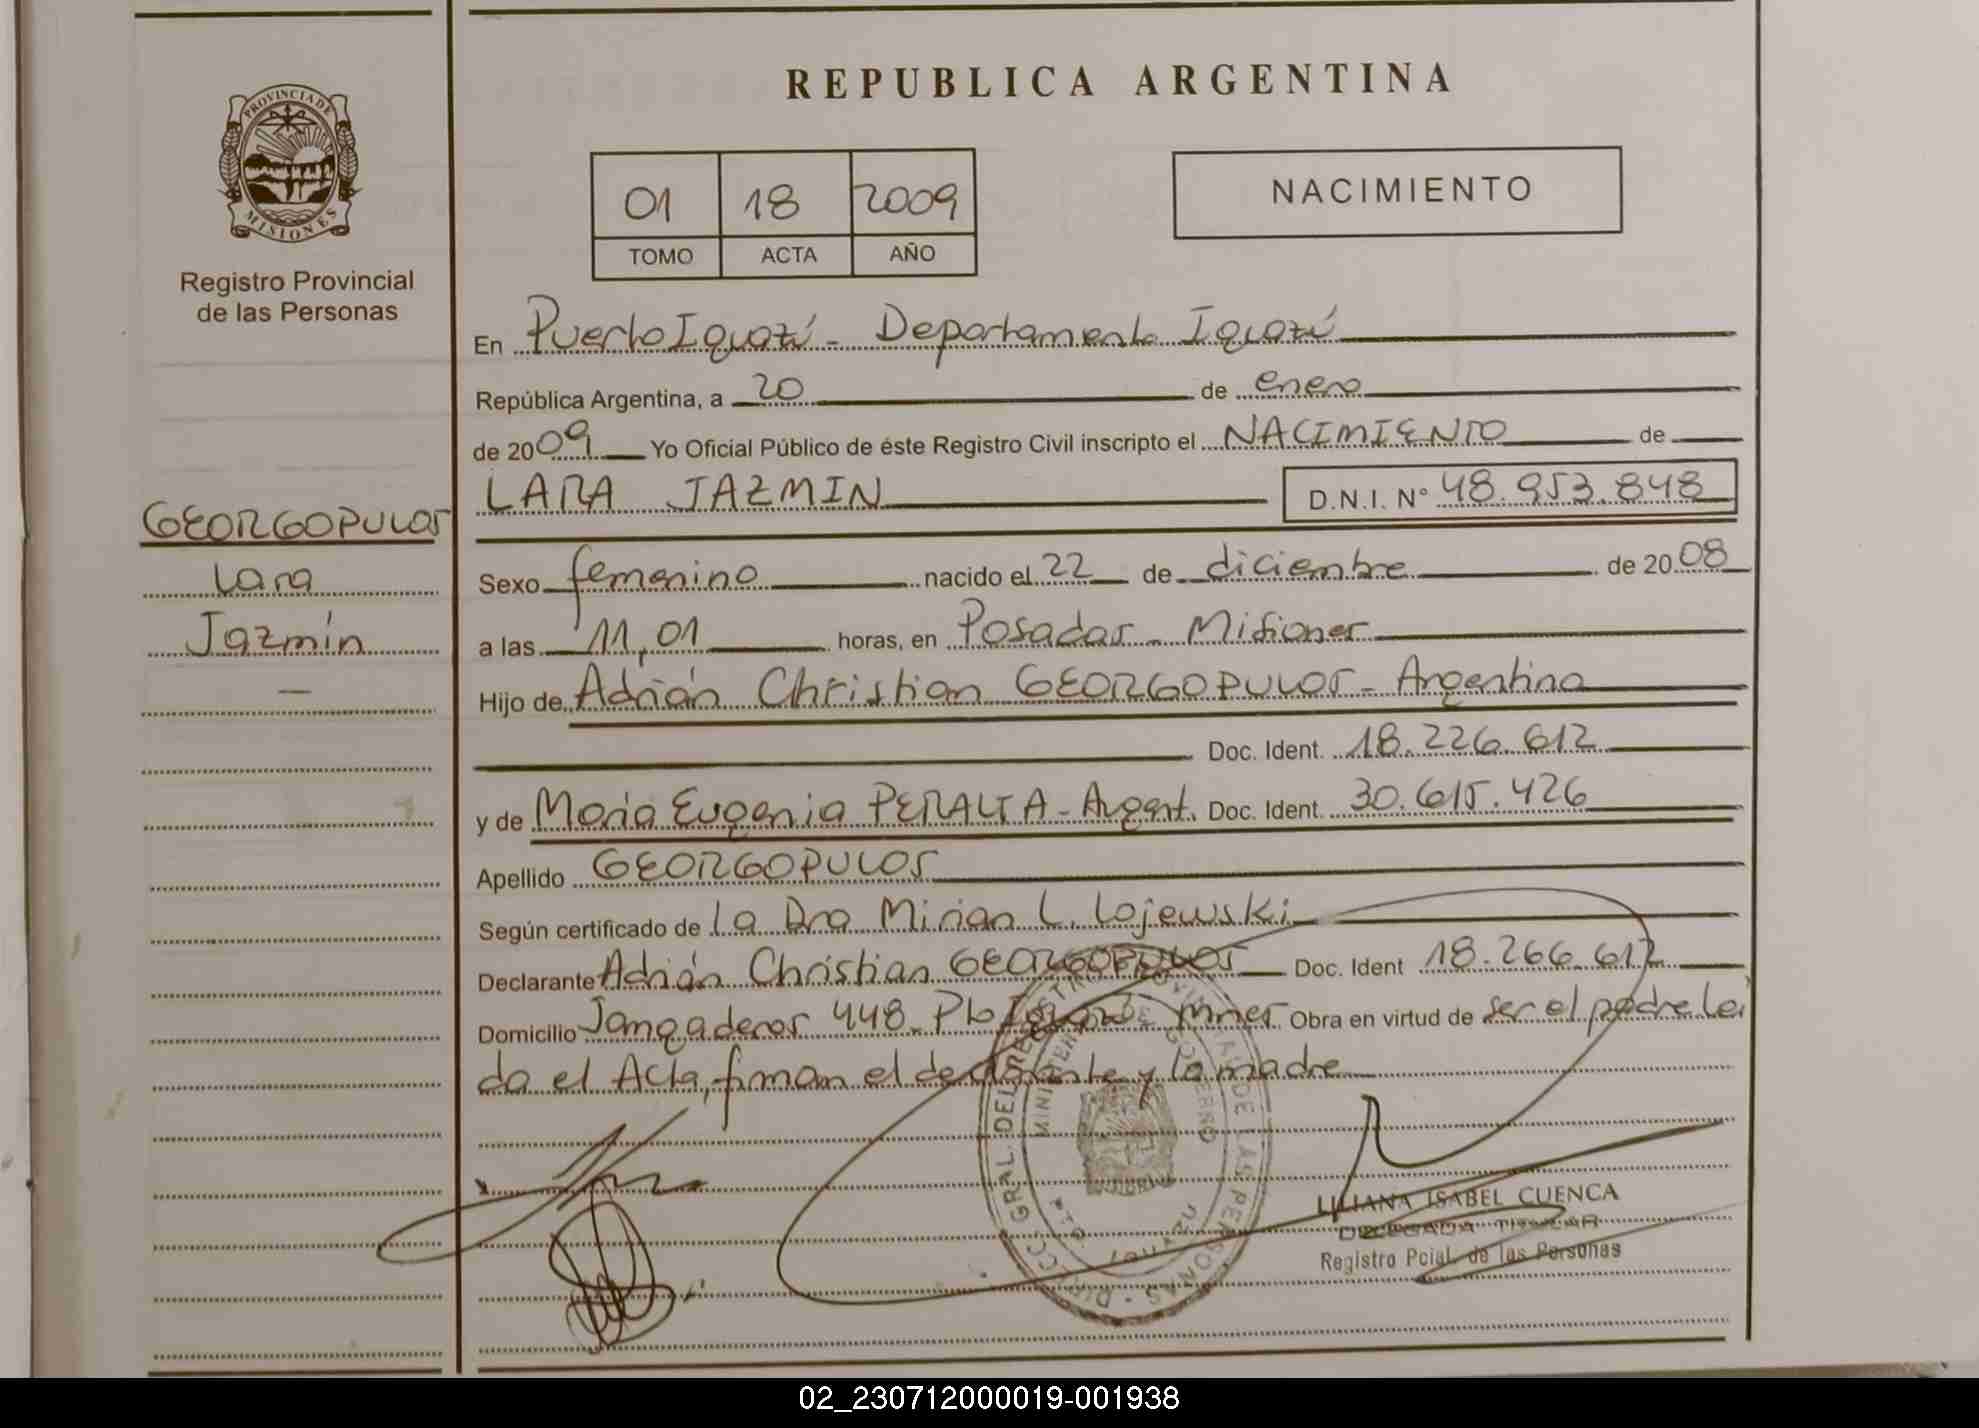 REPUBLICA ARGENTINA
PROVINCIA DE MISIONES
Registro Provincial
de las Personas
01 18 2009
TOMO ACTA AÑO
NACIMIENTO
En Puerto Iguazú - Departamento Iguazú
República Argentina, a 20 de enero
de 2009 Yo Oficial Público de éste Registro Civil inscripto el NACIMIENTO de
LARA JAZMIN D.N.I. N° 48.953.848
GEORGOPULOS
Lara
Jazmín
Sexo femenino nacido el 22 de diciembre de 2008
a las 11,01 horas, en Posadas - Misiones
Hijo de Adrián Christian GEORGOPULOS - Argentino
Doc. Ident. 18.226.612
y de María Eugenia PERALTA - Argent. Doc. Ident. 30.615.426
Apellido GEORGOPULOS
Según certificado de la Dra Mirian L. Lojewski
Declarante Adrián Christian GEORGOPULOS Doc. Ident 18.266.612
Domicilio Jangaderos 448 - Pto Iguazú - Mnes Obra en virtud de ser el padre Leí
do el Acta, firman el declarante y la madre
DIRECC. GRAL. DEL REGISTRO PROVINCIAL DE LAS PERSONAS
MINISTERIO DE GOBIERNO
LILIANA ISABEL CUENCA
DELEGADA TITULAR
Registro Pcial. de las Personas
02_230712000019-001938